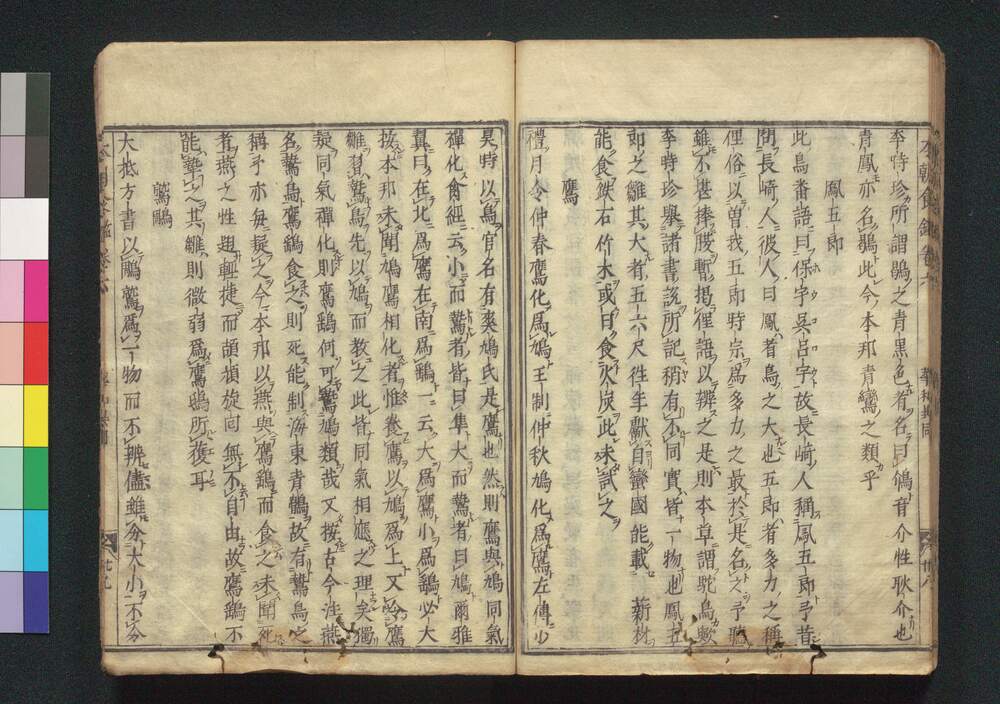 李時珍所謂鶡之青黒色者名曰鳻音介性耿介也
青鳳亦名鶡此今本邦青鸞之類乎
鳳五郎
此鳥番語曰保字吳呂字故長﨑人稱鳳五郎予昔
問長﨑人彼人曰鳳者鳥之大也五郎者多力之稱
俚俗以曽我五郎時宗爲多力之最於是名之予聽
雖不堪捧腹暫揭俚語以辨之是則本草謂駝鳥歟
李時珍舉諸書說所記稍有不同實皆一物也鳳五
郎之雛其大者五六尺徃年獻自蠻國能載薪材
能食鉄石竹木或曰食火炭此未試之
鷹
禮月令仲春鷹化爲鳩王制仲秋鳩化爲鷹左傳少
昊時以鳥官名有爽鳩氏是鷹也然則鷹與鳩同氣
禪化食經云小而鷙者皆曰隼大而鷙者曰鳩爾雅
翼曰在北爲鷹在南爲鷂一云大爲鷹小爲鷂必大
按本邦未聞鳩鷹相化者惟養鷹以鳩爲上又令鷹
雛習鷙鳥先以鳩而教之此皆同氣相應之理矣獨
疑同氣禪化則鷹鷂何可鷙鳩類哉又按古今注燕
名鷙鳥鷹鷂食之則死能制海東青鶻故有鷙鳥之
稱予亦毎疑之今本邦以燕與鷹鷂而食之未聞死
者燕之性翅輕捷而頡頏旋囘無不自由故鷹鷂不
能摯之其雛則微弱爲鷹鴟所獲耳
鷲鵰
大抵方書以鵰鷲爲一物而不辨儘雖分大小不分
本朝食鑑卷六
華和異同
廿八
廿九